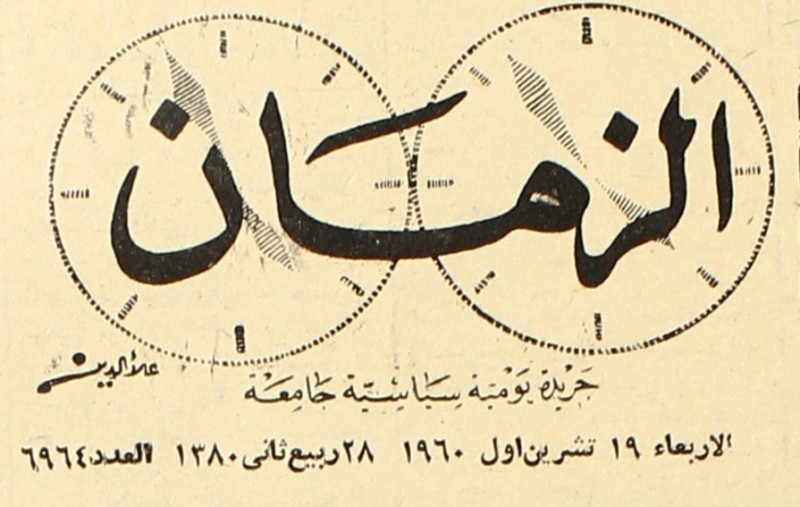 الزمان
علاءالدين
جريدة يومية سياسية جامعة
الاربعاء ١٩ تشرين اول ١٩٦٠ ٢٨ ربيع ثاني ١٣٨٠ العدد ٦٩٦٤